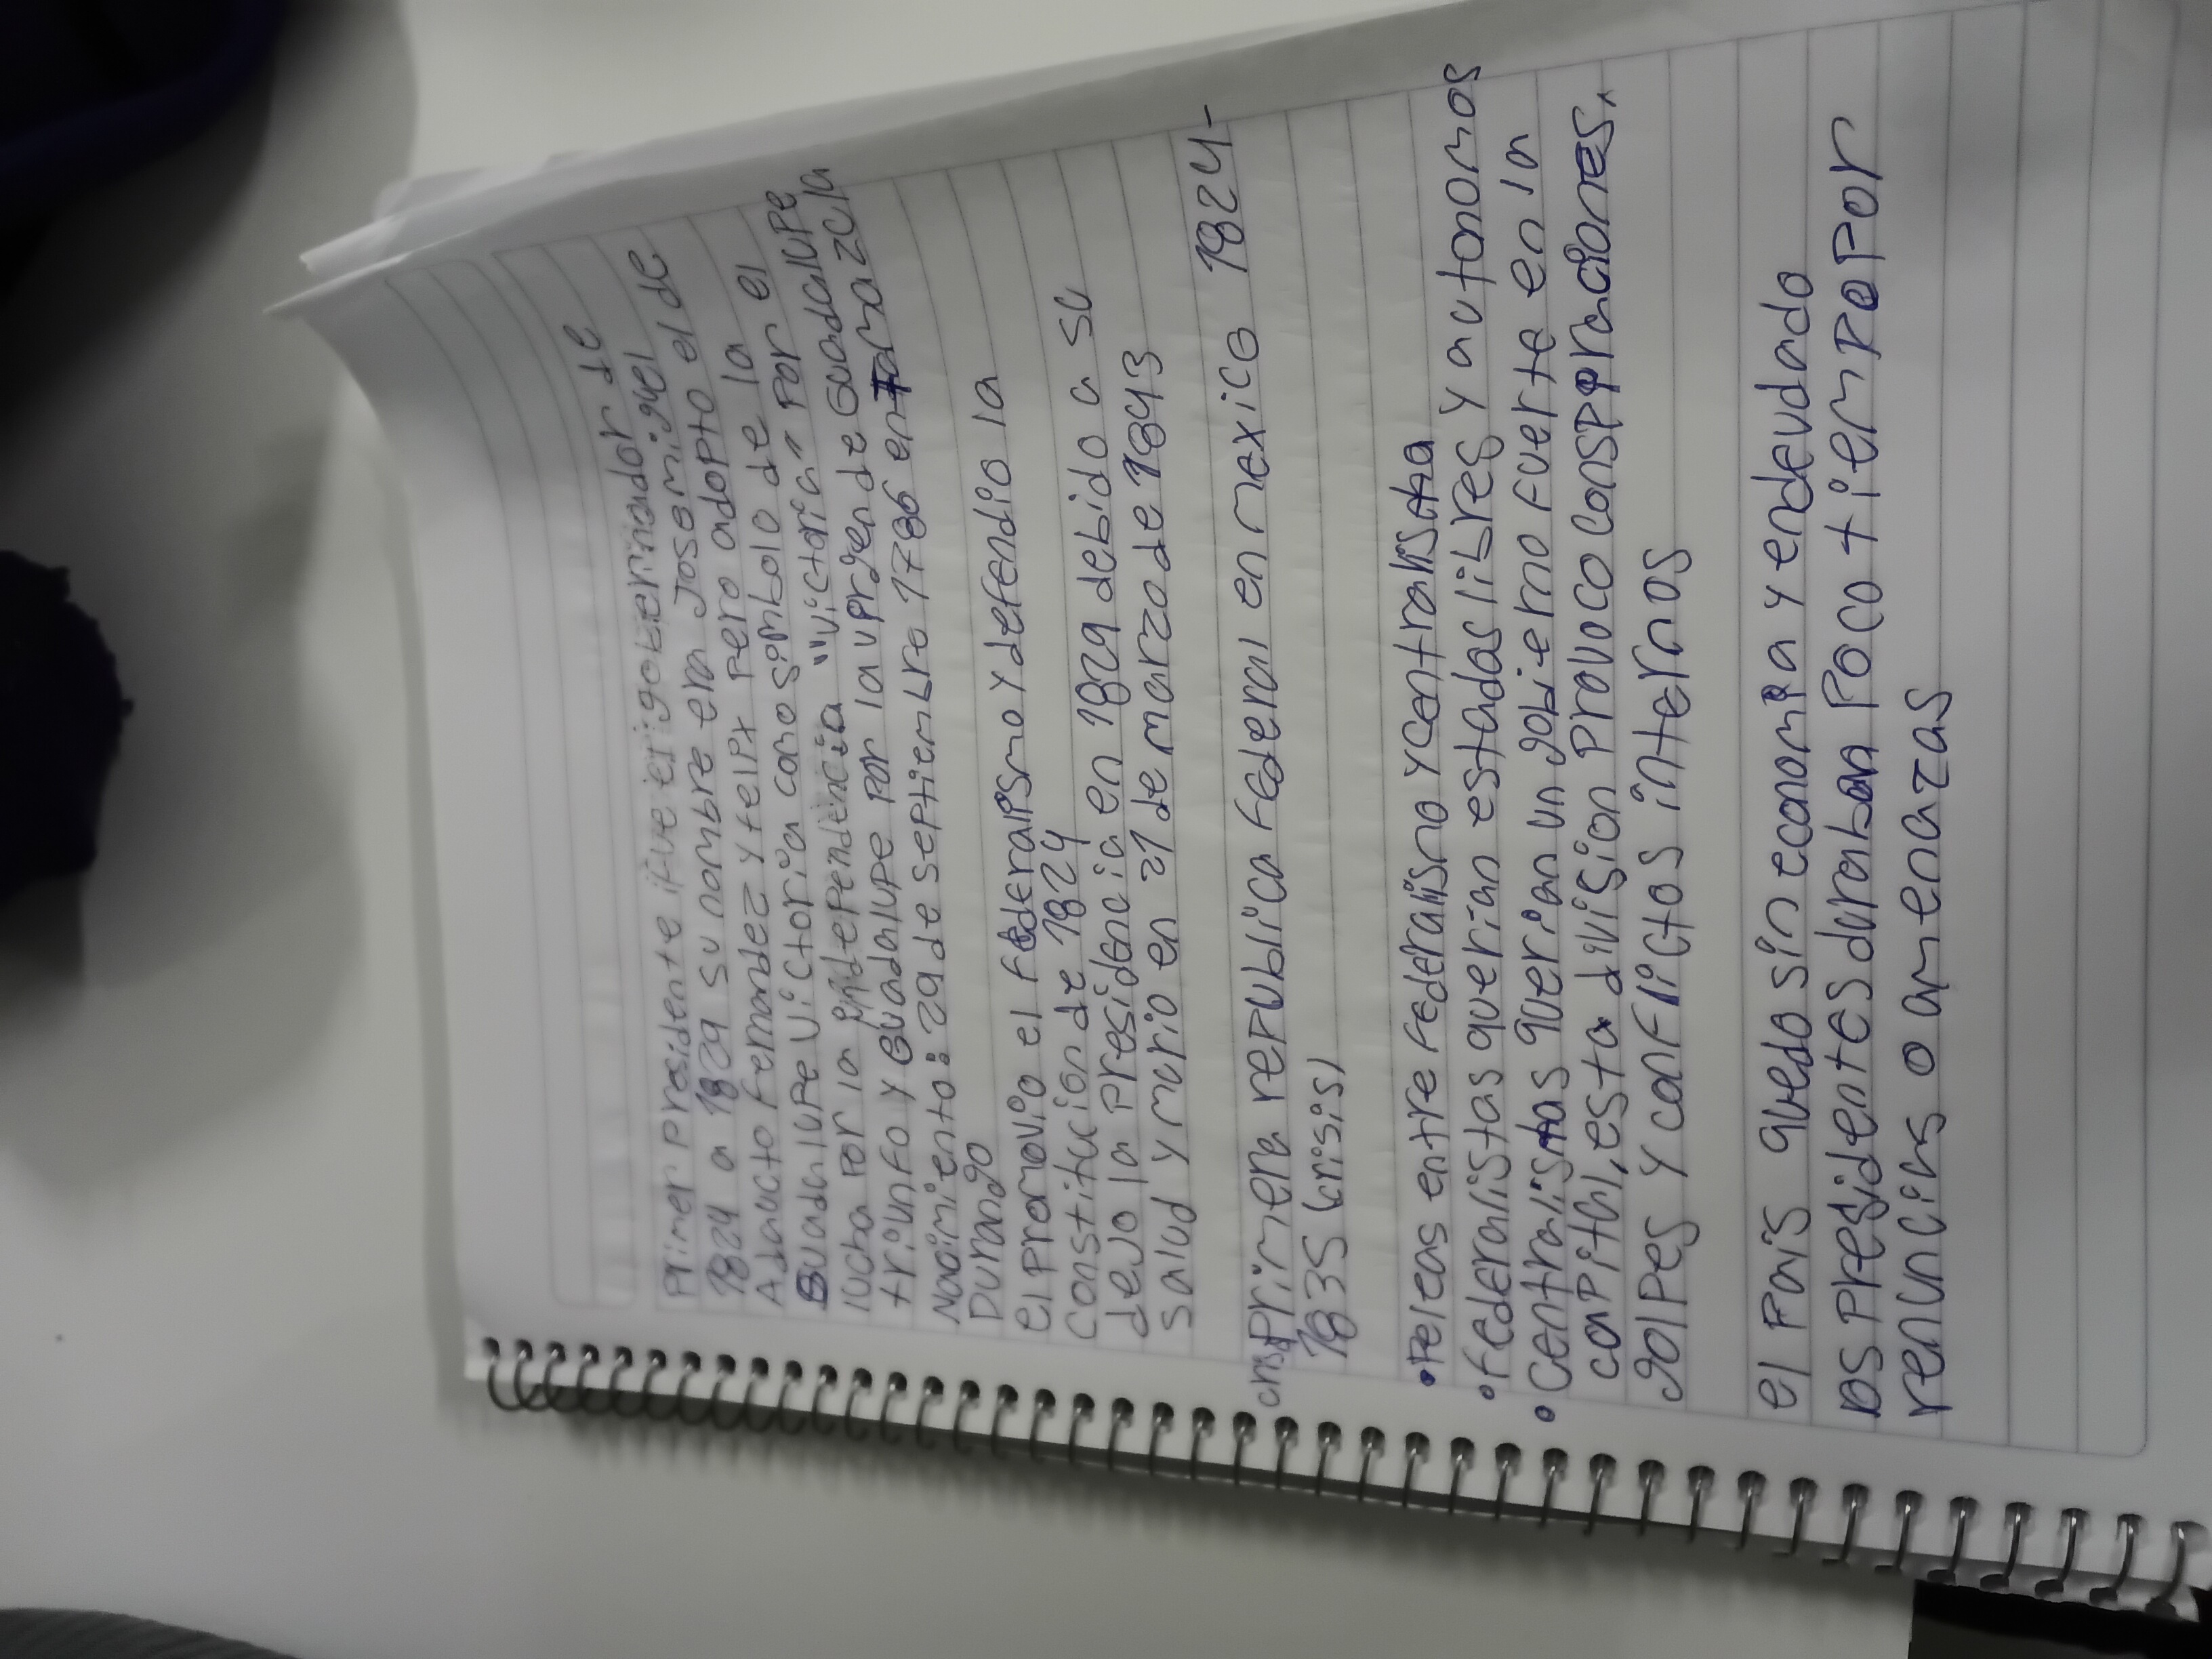 Primer Presidente fue el gobernador de
1824 a 1829 su nombre era Jose miguel
Adaucto Fernandez y felix Pero adopto el de
Guadalupe Victoria como simbolo de la
lucha Por la independencia "victoria" Por el
triunfo y Guadalupe Por la virgen de Guadalupe
Nacimiento: 29 de septiembre 1786 en tamazula
Durango
el Promovio el Federalismo y defendio la
Constitución de 1824
dejo la Presidencia en 1829 debido a su
salud y murio en 21 de marzo de 1843
Primera republica Federal en mexico 1824-
1835 (crisis)
• Peleas entre Federalismo y centralista
• Federalistas querian estados libres y autonomos
• Centralistas querian un gobierno fuerte en la
capital, esta division Provoco conspiraciones,
golpes y conflictos internos
el Pais quedo sin economia y endeudado
os Presidentes duraban Poco tiempo Por
renuncias o amenazas